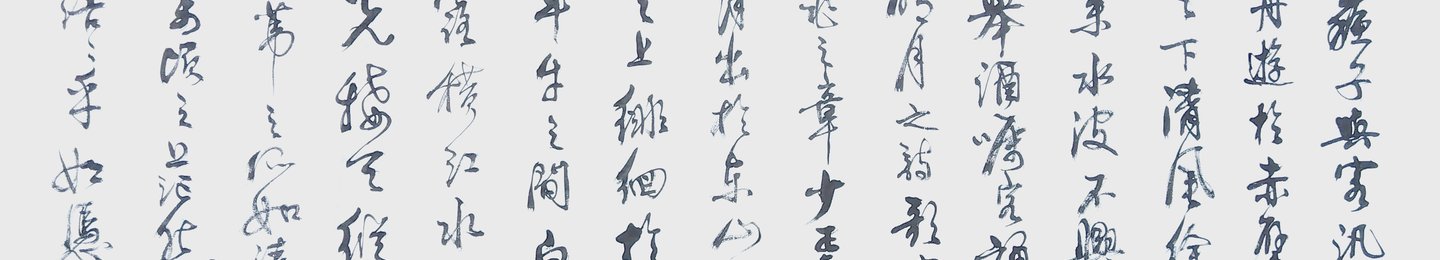 蘇子與客汎
舟遊於赤壁
之下清風徐
来水波不興
舉酒嘱客誦
明月之詩歌
窕之章少焉
月出於東山
之上徘徊於
斗牛之間白
露横江水
光接天縱
葦之所如凌
万頃之茫然
浩〻乎如憑